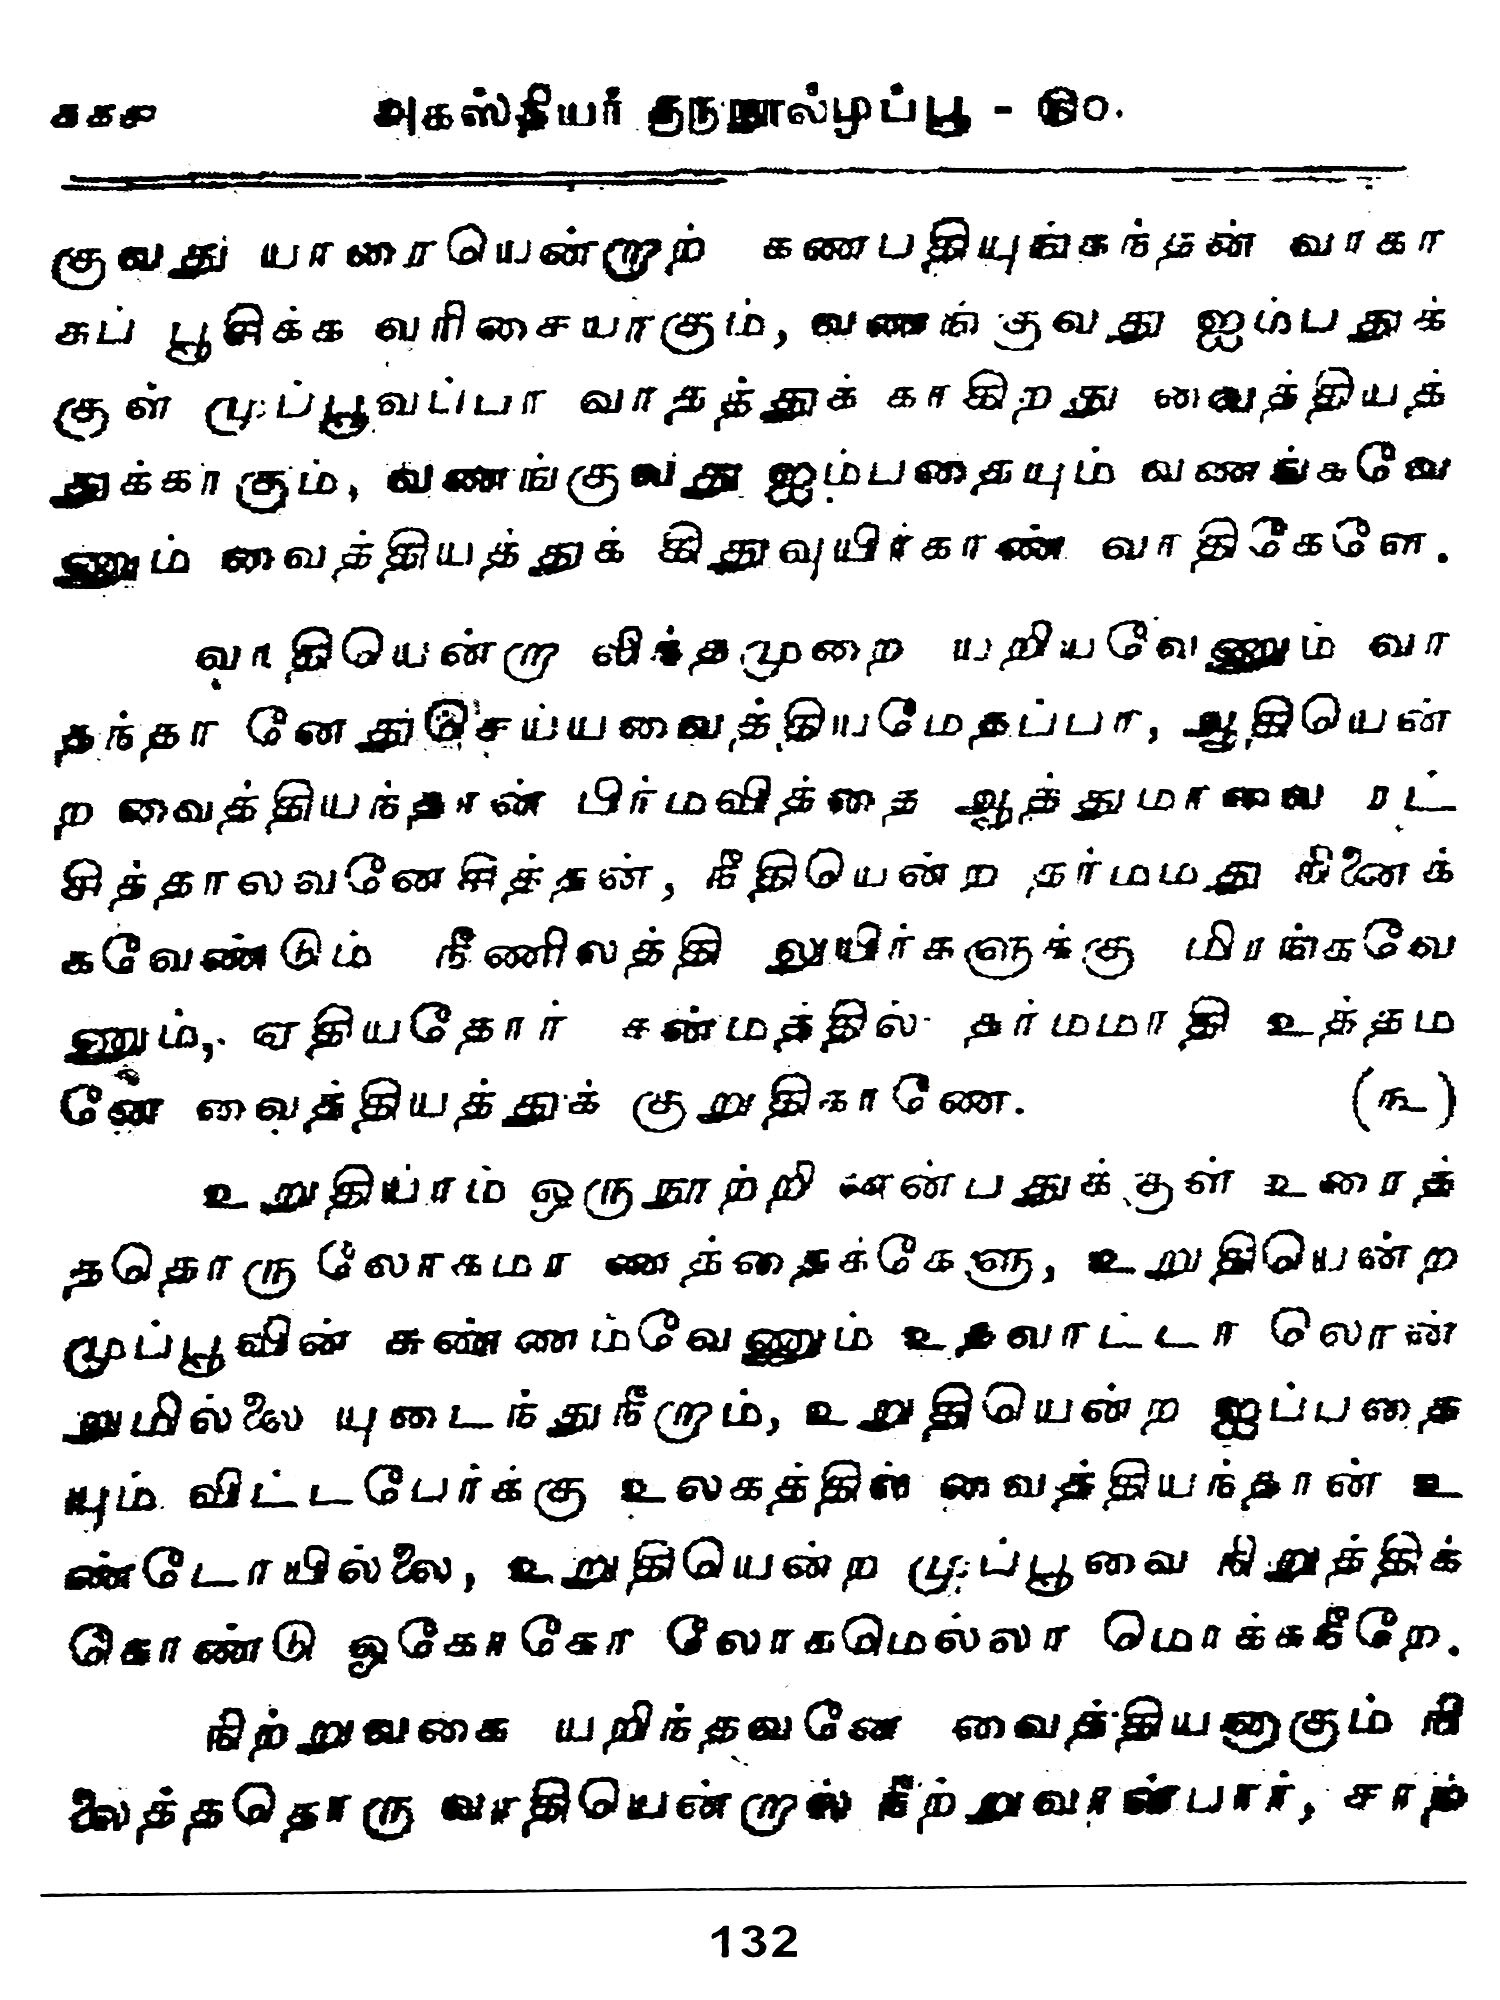 ககசு அகஸ்தியர் குருநூல்முப்பூ - ௫0.
குவது யாரையென்றாற் கணபதியுங்கந்தன் வாகா
சுப் பூசிக்க வரிசையாகும், வணங்குவது ஐம்பதுக்
குள் முப்பூவப்பா வாதத்துக் காகிறது வைத்தியத்
துக்காகும், வணங்குவது ஐம்பதையும் வணங்கவே
ணும் வைத்தியத்துக் கிதுவுயிர்காண் வாதிகேளே.
வாதியென்றா லிந்தமுறை யறியவேணும் வா
தந்தா னேதுசெய்யவைத்தியமேதப்பா, ஆதியென்
ற வைத்தியந்தான் பிர்மவித்தை ஆத்துமாவை ரட்
சித்தாலவனேசித்தன், நீதியென்ற தர்மமது நினைக்
கவேண்டும் நீணிலத்தி லுயிர்களுக்கு மிரங்கவே
ணும், ஏதியதோர் சன்மத்தில் தர்மமாதி உத்தம
னே வைத்தியத்துக் குறுதிகாணே. (௩)
உறுதியாம் ஒருநூற்றி லைன்பதுக்குள் உரைத்
ததொரு லோகமா ணத்தைக்கேளு, உறுதியென்ற
முப்பூவின் சுண்ணம்வேணும் உதவாட்டா லொன்
றுமில்லை யுடைந்துநீறாம், உறுதியென்ற ஐப்பதை
யும் விட்டபேர்க்கு உலகத்தில் வைத்தியந்தான் உ
ண்டோயில்லை, உறுதியென்ற முப்பூவை நிறுத்திக்
கொண்டு ஓகோகோ லோகமெல்லா மொக்கநீறே.
நிற்றுவகை யறிந்தவனே வைத்தியனாகும் நி
லைத்ததொரு வாதியென்றால் நீற்றுவான்பார், சாற்
132